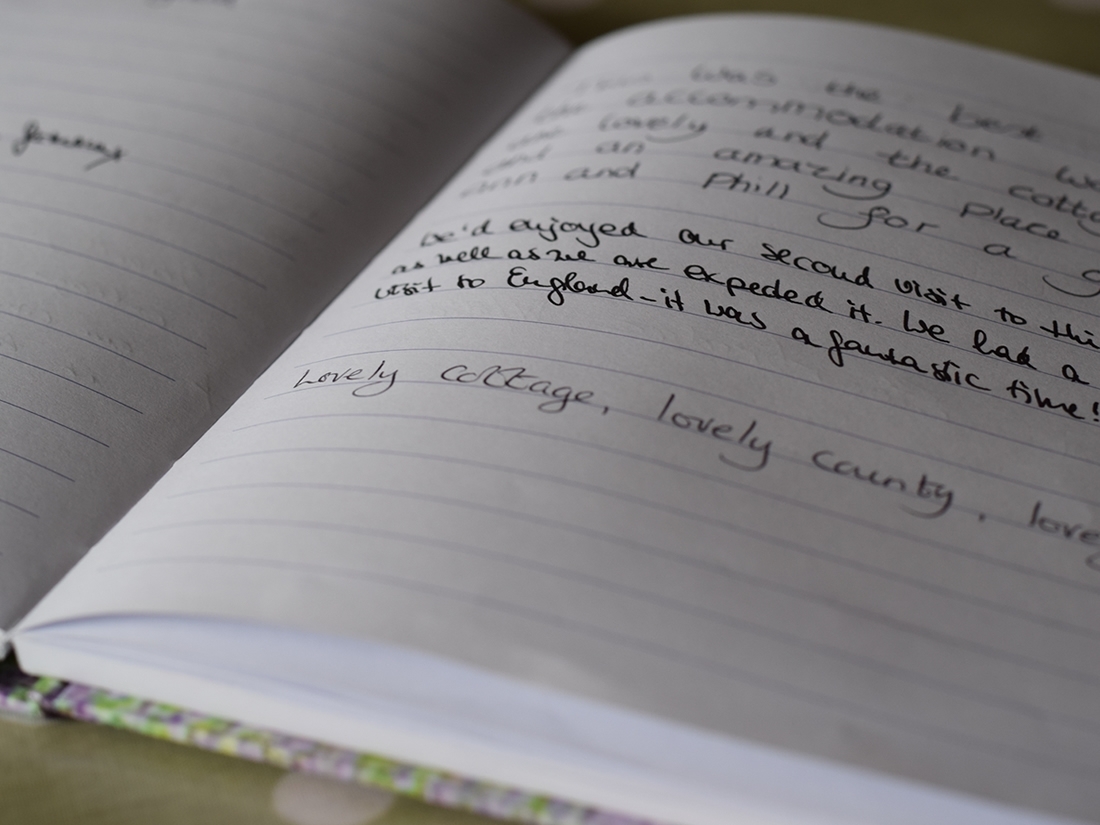 Germany
was the best
the accommodation
lovely and the
and an amazing place
ann and Phill for a
We'd enjoyed our second visit to this
as well as we are expected it. We had a
visit to England - it was a fantastic time!
Lovely cottage, lovely county,